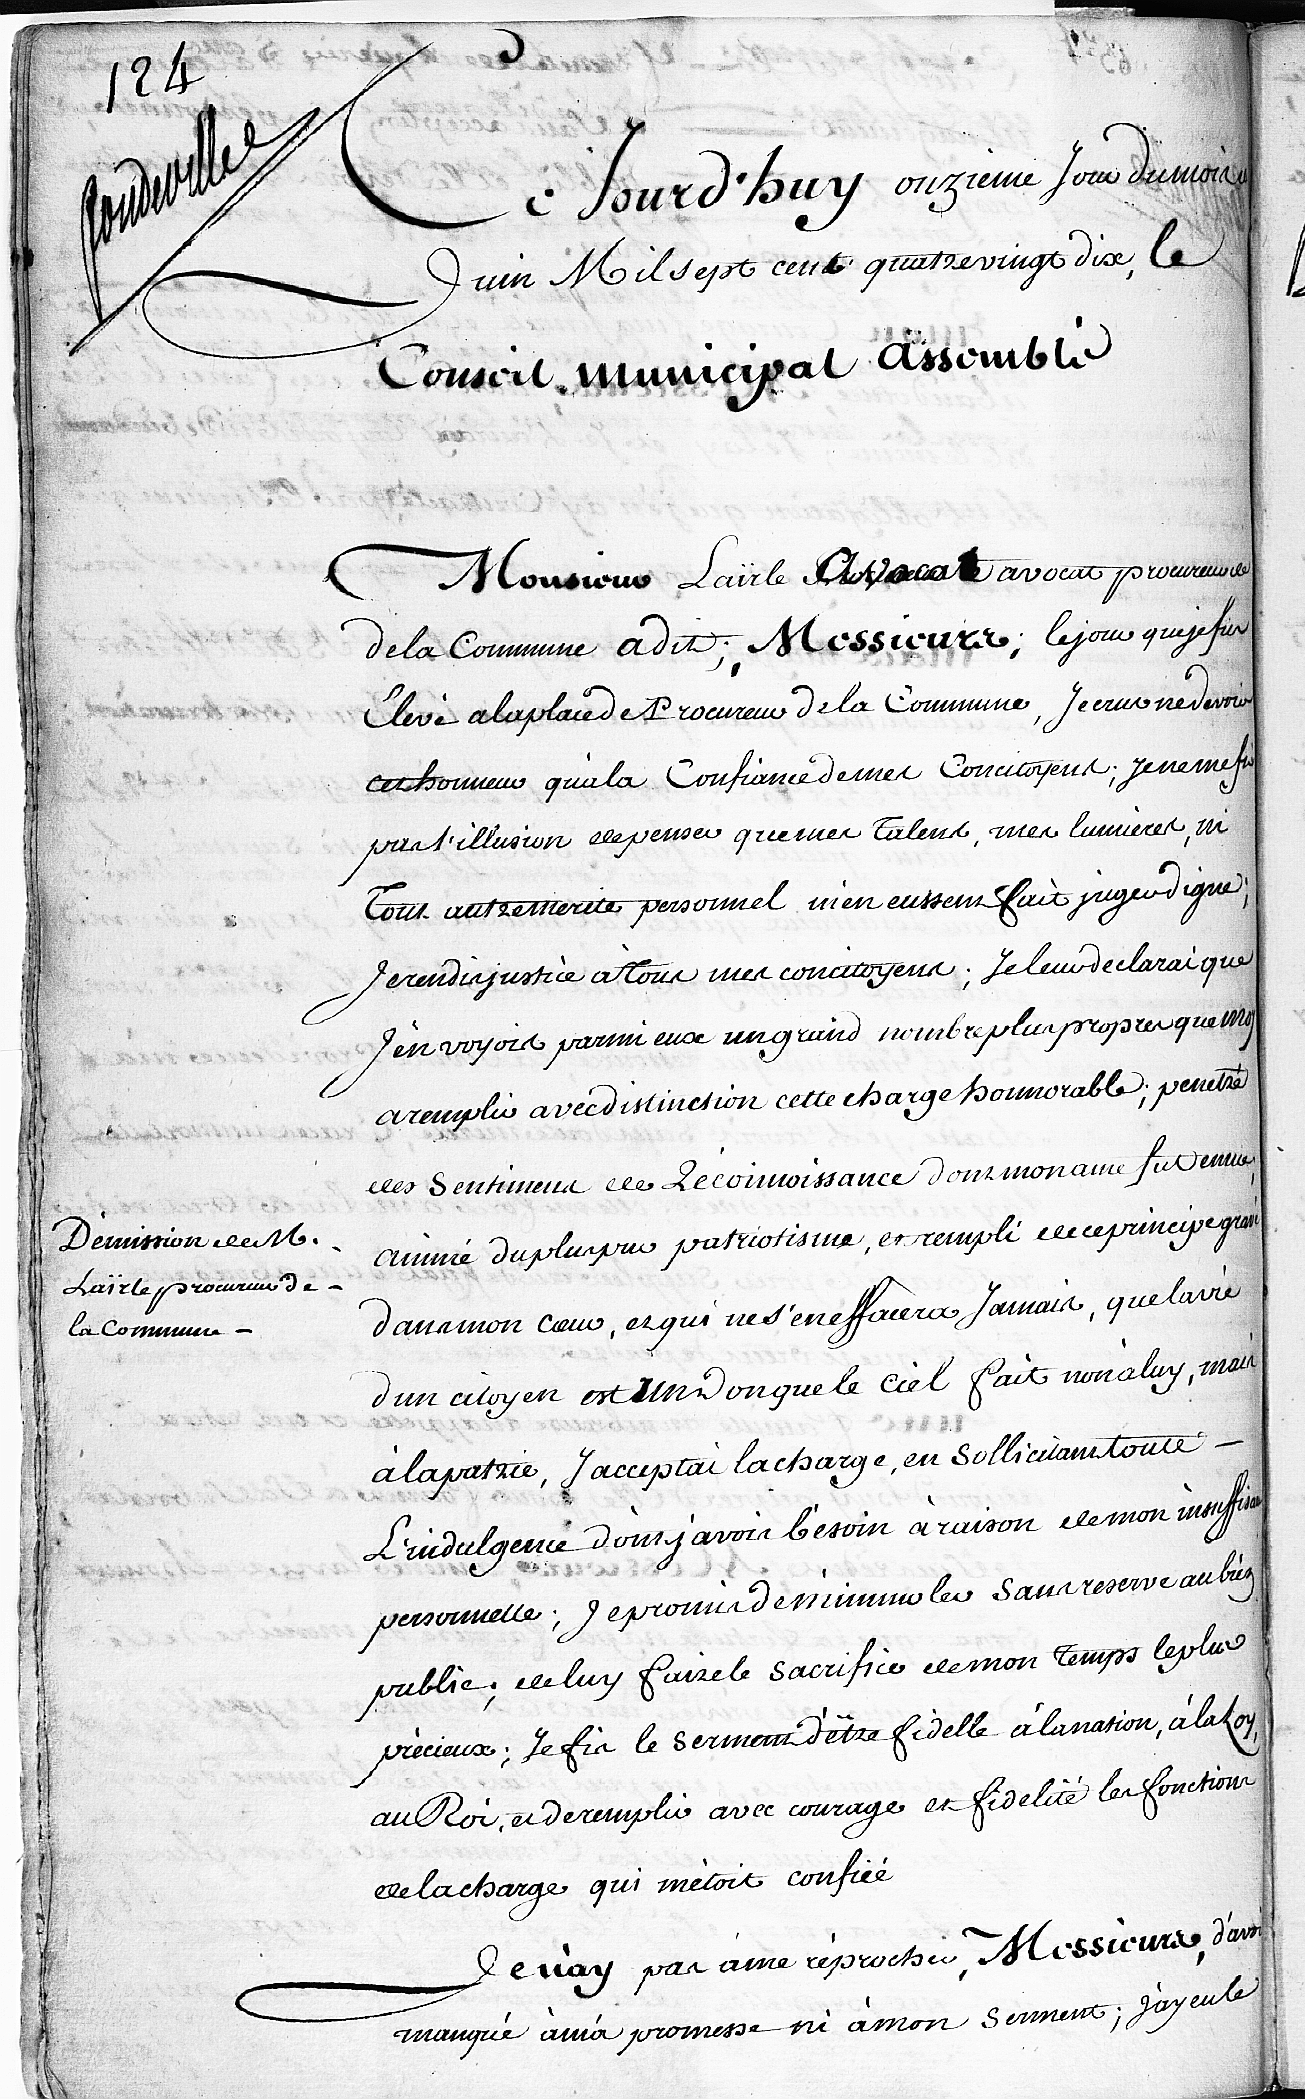 124
Ce Jourd'huy onzieme Jour du mois de
Juin Mil sept cent quatre vingt dix, le
Conseil municipal assemblé
Monsieur Laïrle avocat procureur de
de la Commune a dit; Messieurs; le jour que je fus
Elevé a la place de Procureur de la Commune, Je crus ne devoir
cet honneur qu'a la Confiance de mes Concitoyens; je ne me fis
pas l'illusion de penser que mes Talens, mes lumieres, ni
Tout autre merite personnel m'en eussent fait juger digne;
Je rendis justice à Tous mes concitoyens; Je leur declarai que
J'en voyois parmi eux un grand nombre plus propres que moy
a remplir avec distinction cette charge honnorable; penetré
des Sentimens de Réconnoissance dont mon ame fut emue,
animé du plus pur patriotisme, et rempli de ce principe gravé
dans mon cœur, et qui ne s'en effacera Jamais, que la vie
d'un citoyen est Un Don que le Ciel fait non à luy, mais
à la patrie, J'acceptai la charge, en Sollicitant toute -
L'indulgence dont j'avois bésoin à raison de mon insuffisance
personnelle; Je promis de m'immoler Sans reserve au bien
public; de luy faire le Sacrifice de mon Temps le plus
précieux; Je fis le Serment d'être fidelle à la nation, à la Loy,
au Roi, et de remplir avec courage et fidelité les fonctions
de la charge qui m'étoit confiée
Je n'ay pas à me réprocher, Messieurs, d'avoir
manqué à ma promesse ni à mon Serment; J'ay eu le
Démission de M.
Laïrle procureur de -
la Commune -